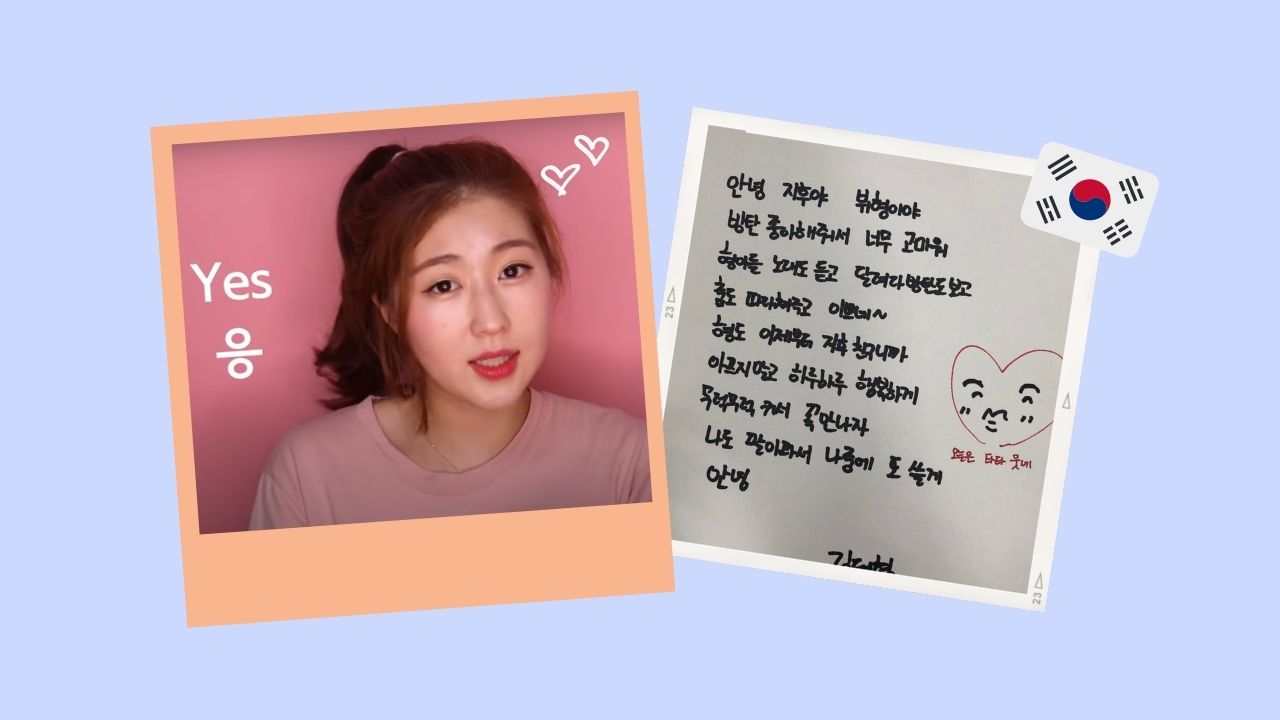 Yes
응
안녕 지후야 뷔형이야
방탄 좋아해줘서 너무 고마워
형아들 노래도 듣고 달려라방탄도 보고
춤도 따라해주고 이쁘네~
형도 이제부터 지후 친구니까
아프지말고 하루하루 행복하게
무럭무럭 커서 꼭 만나자
나도 말이타서 나중에 또 쓸게
안녕
오늘은 타타 웃네
23
23